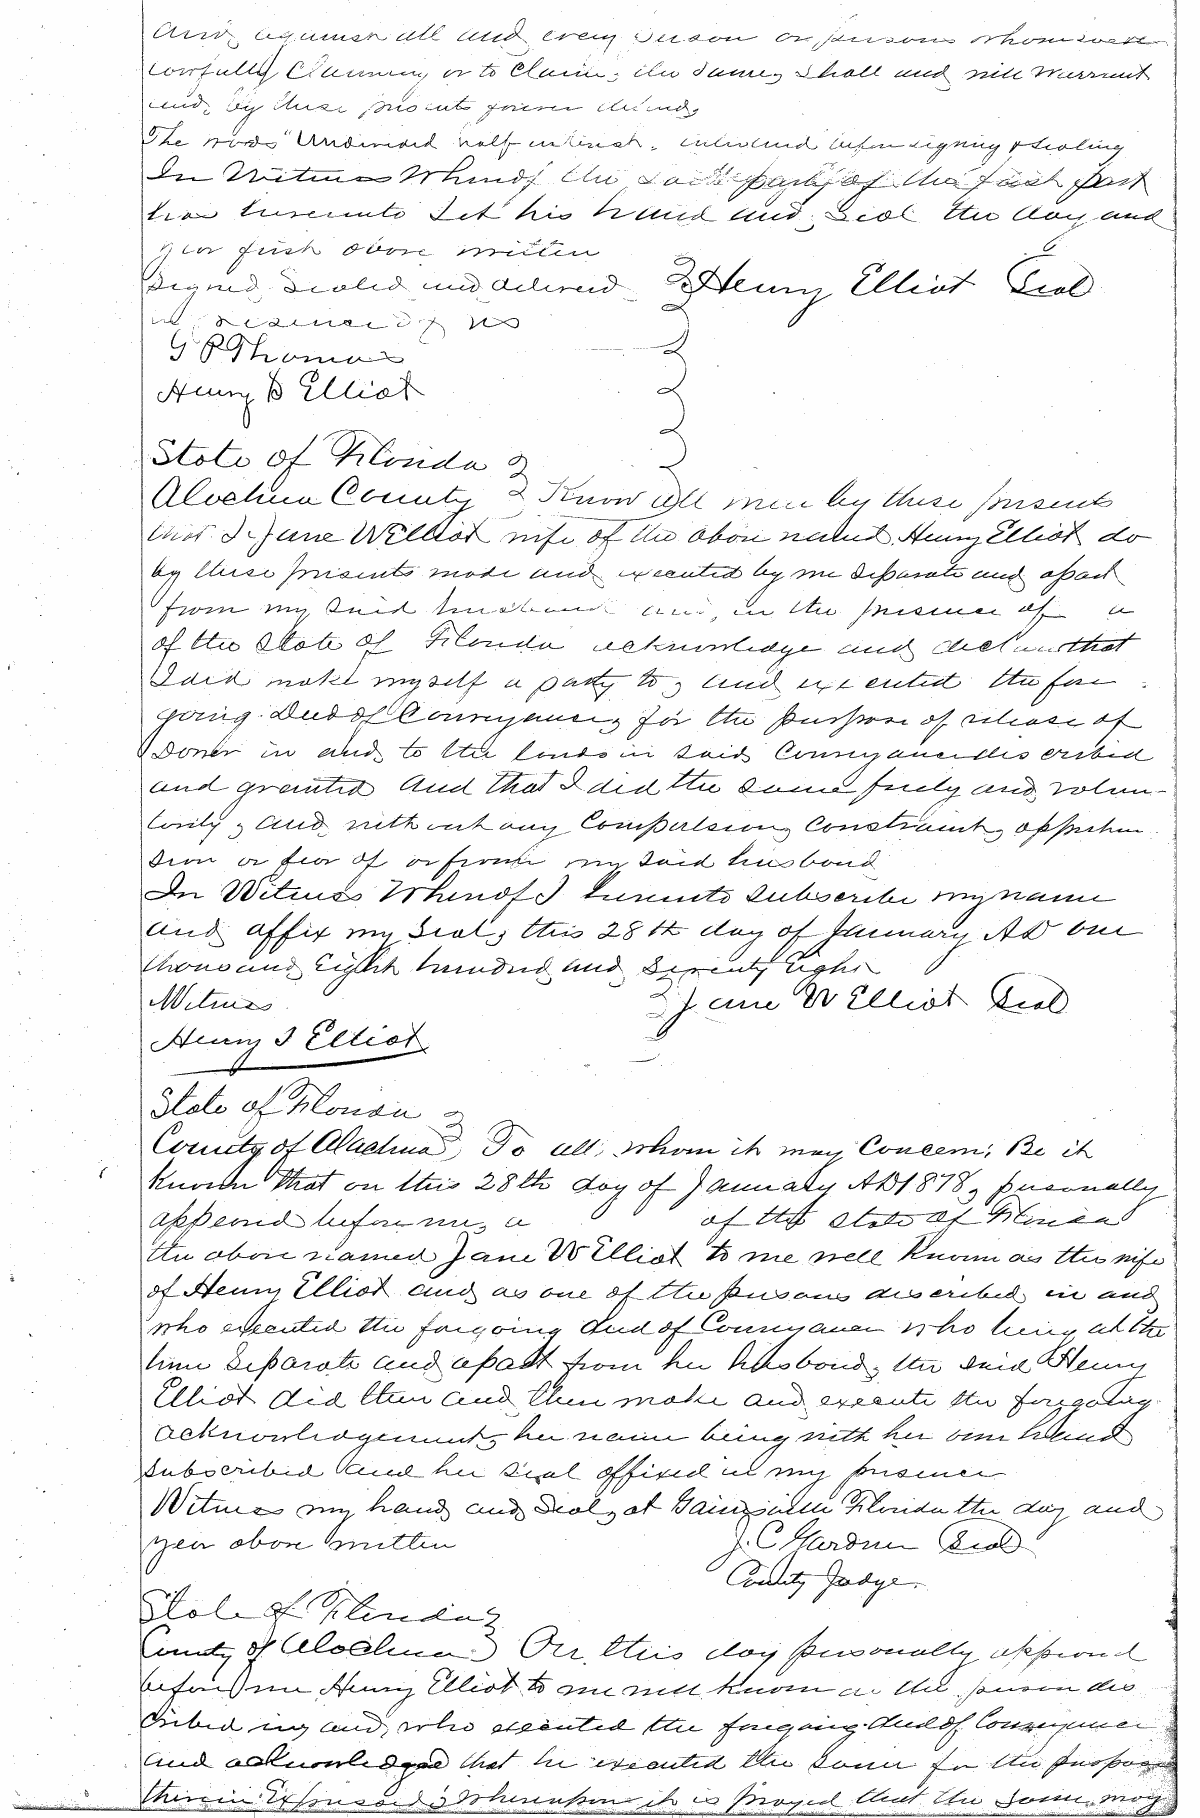 And against all and every person or persons whomsoever
lawfully Claiming or to Claim, the same, shall and will warrant
and, by these presents forever defend,
The words "Undivided half interest" interlined before signing & sealing
In Witness Whereof the said party of the first part
has hereunto Set his hand and, Seal the day and
year first above written
Signed, Sealed and delivered Henry Elliot Seal
in presence of us
G P Thomas
Henry B Elliot
State of Florida
Alachua County Know all men by these presents
that I Jane W Elliot wife of the above named, Henry Elliot do
by these presents made and executed by me Separate and apart
from my Said husband and, in the presence of a
of the State of Florida acknowledge and declare that
I did make myself a party to, and executed the fore
going Deed of Conveyance, for the purpose of release of
Dower in and to the lands in said, Conveyance described
and granted And that I did the same freely and, volun-
tarily, and, without any Compulsion, Constraint, apprehen
sion or fear of or from my Said husband
In Witness Whereof I hereunto Subscribe my name
and affix my Seal, this 28th day of January AD one
thousand, Eight hundred, and Seventy Eight
Witness Jane W Elliot Seal
Henry J Elliot
State of Florida
County of Alachua To all, whom it may Concern: Be it
known that on this 28th day of January AD 1878, personally
appeared before me, a of the State of Florida
the above named Jane W Elliot to me well known as the wife
of Henry Elliot and as one of the persons described, in and
who executed the forgoing deed of Conveyance who being at the
time Separate and apart from her husband, the said Henry
Elliot did then and, then make and execute the foregoing
acknowledgement, her name being with her own hand
Subscribed and her Seal affixed in my presence
Witness my hand and Seal, at Gainesville Florida the day and
year above written J. C Gardner Seal
County Judge.
State of Florida
County of Alachua On, this day personally appeared
before me Henry Elliot to me well known as the person des
cribed in, and, who executed the foregoing deed of Conveyance
and acknowledged that he executed the same for the purpose
therein Expressed; Whereupon it is prayed that the same may